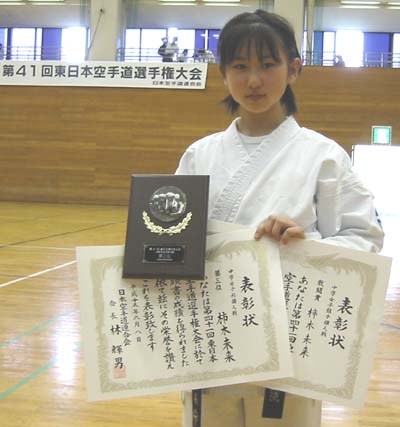 第41回東日本空手道選手権大会
日本空手道連合会
第三位
表彰状
中学女子形個人戦
第三位
柿木未来
あなたは第四十一回東日本
空手道選手権大会に於て
頭書の成績を得られました
依て茲にその栄誉を讃え
これを表彰致します
平成十五年六月八日
日本空手道連合会
会長 林輝男
表彰状
中学女子組手個人戦
敢闘賞 柿木未来
あなたは第四十一回
空手道選